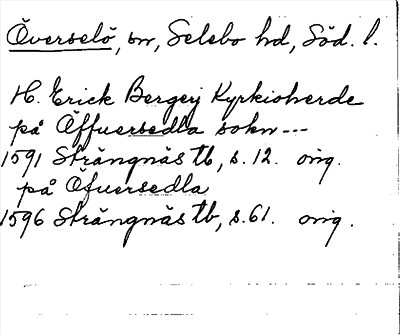 Överselö, sn, Selebo hd, Söd. l.
H. Erick Bergerj Kyrkioherde
på Öffuersedla sokn ---
1591 Strängnäs tb, s. 12. orig.
på Öfuersedla
1596 Strängnäs tb, s. 61. orig.